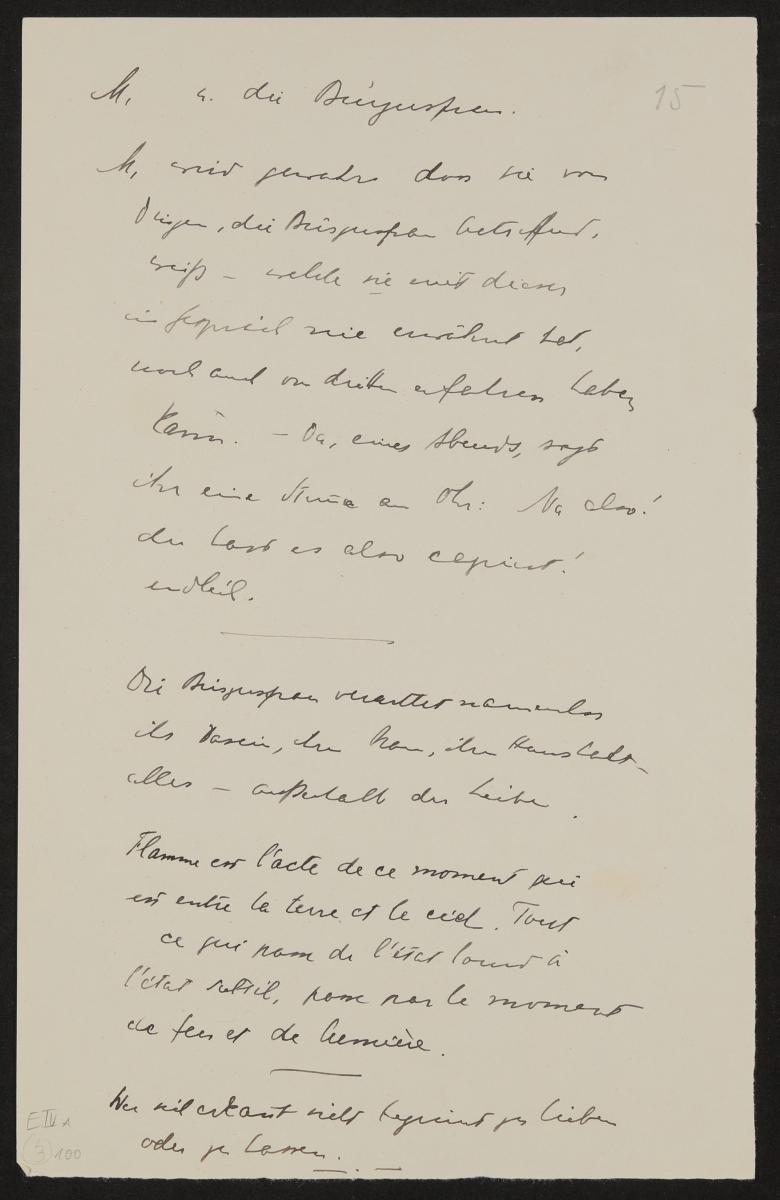 M, u. die Bürgersfrau.
15
M, wird gewahr dass sie von
Dingen, die Bürgersfrau betreffend,
weiß – welche sie mit dieser
im Gespräch nie erwähnt hat,
noch auch von dritten erfahren haben
kann. – Da, eines Abends, sagt
ihr eine Stimme am Ohr: Na also!
du hast es also capiert!
endlich.
Die Bürgersfrau verachtet namenlos
ihr Dasein, den Mann, ihren Haushalt –
alles – außerhalb der Liebe.
Flamme est l'acte de ce moment qui
est entre la terre et le ciel. Tout
ce qui passe de l'état lourd à
l'état subtil, passe par le moment
de feu et de lumière.
Wer sich erkannt sieht beginnt zu lieben
oder zu hassen.
E IV A
3 100